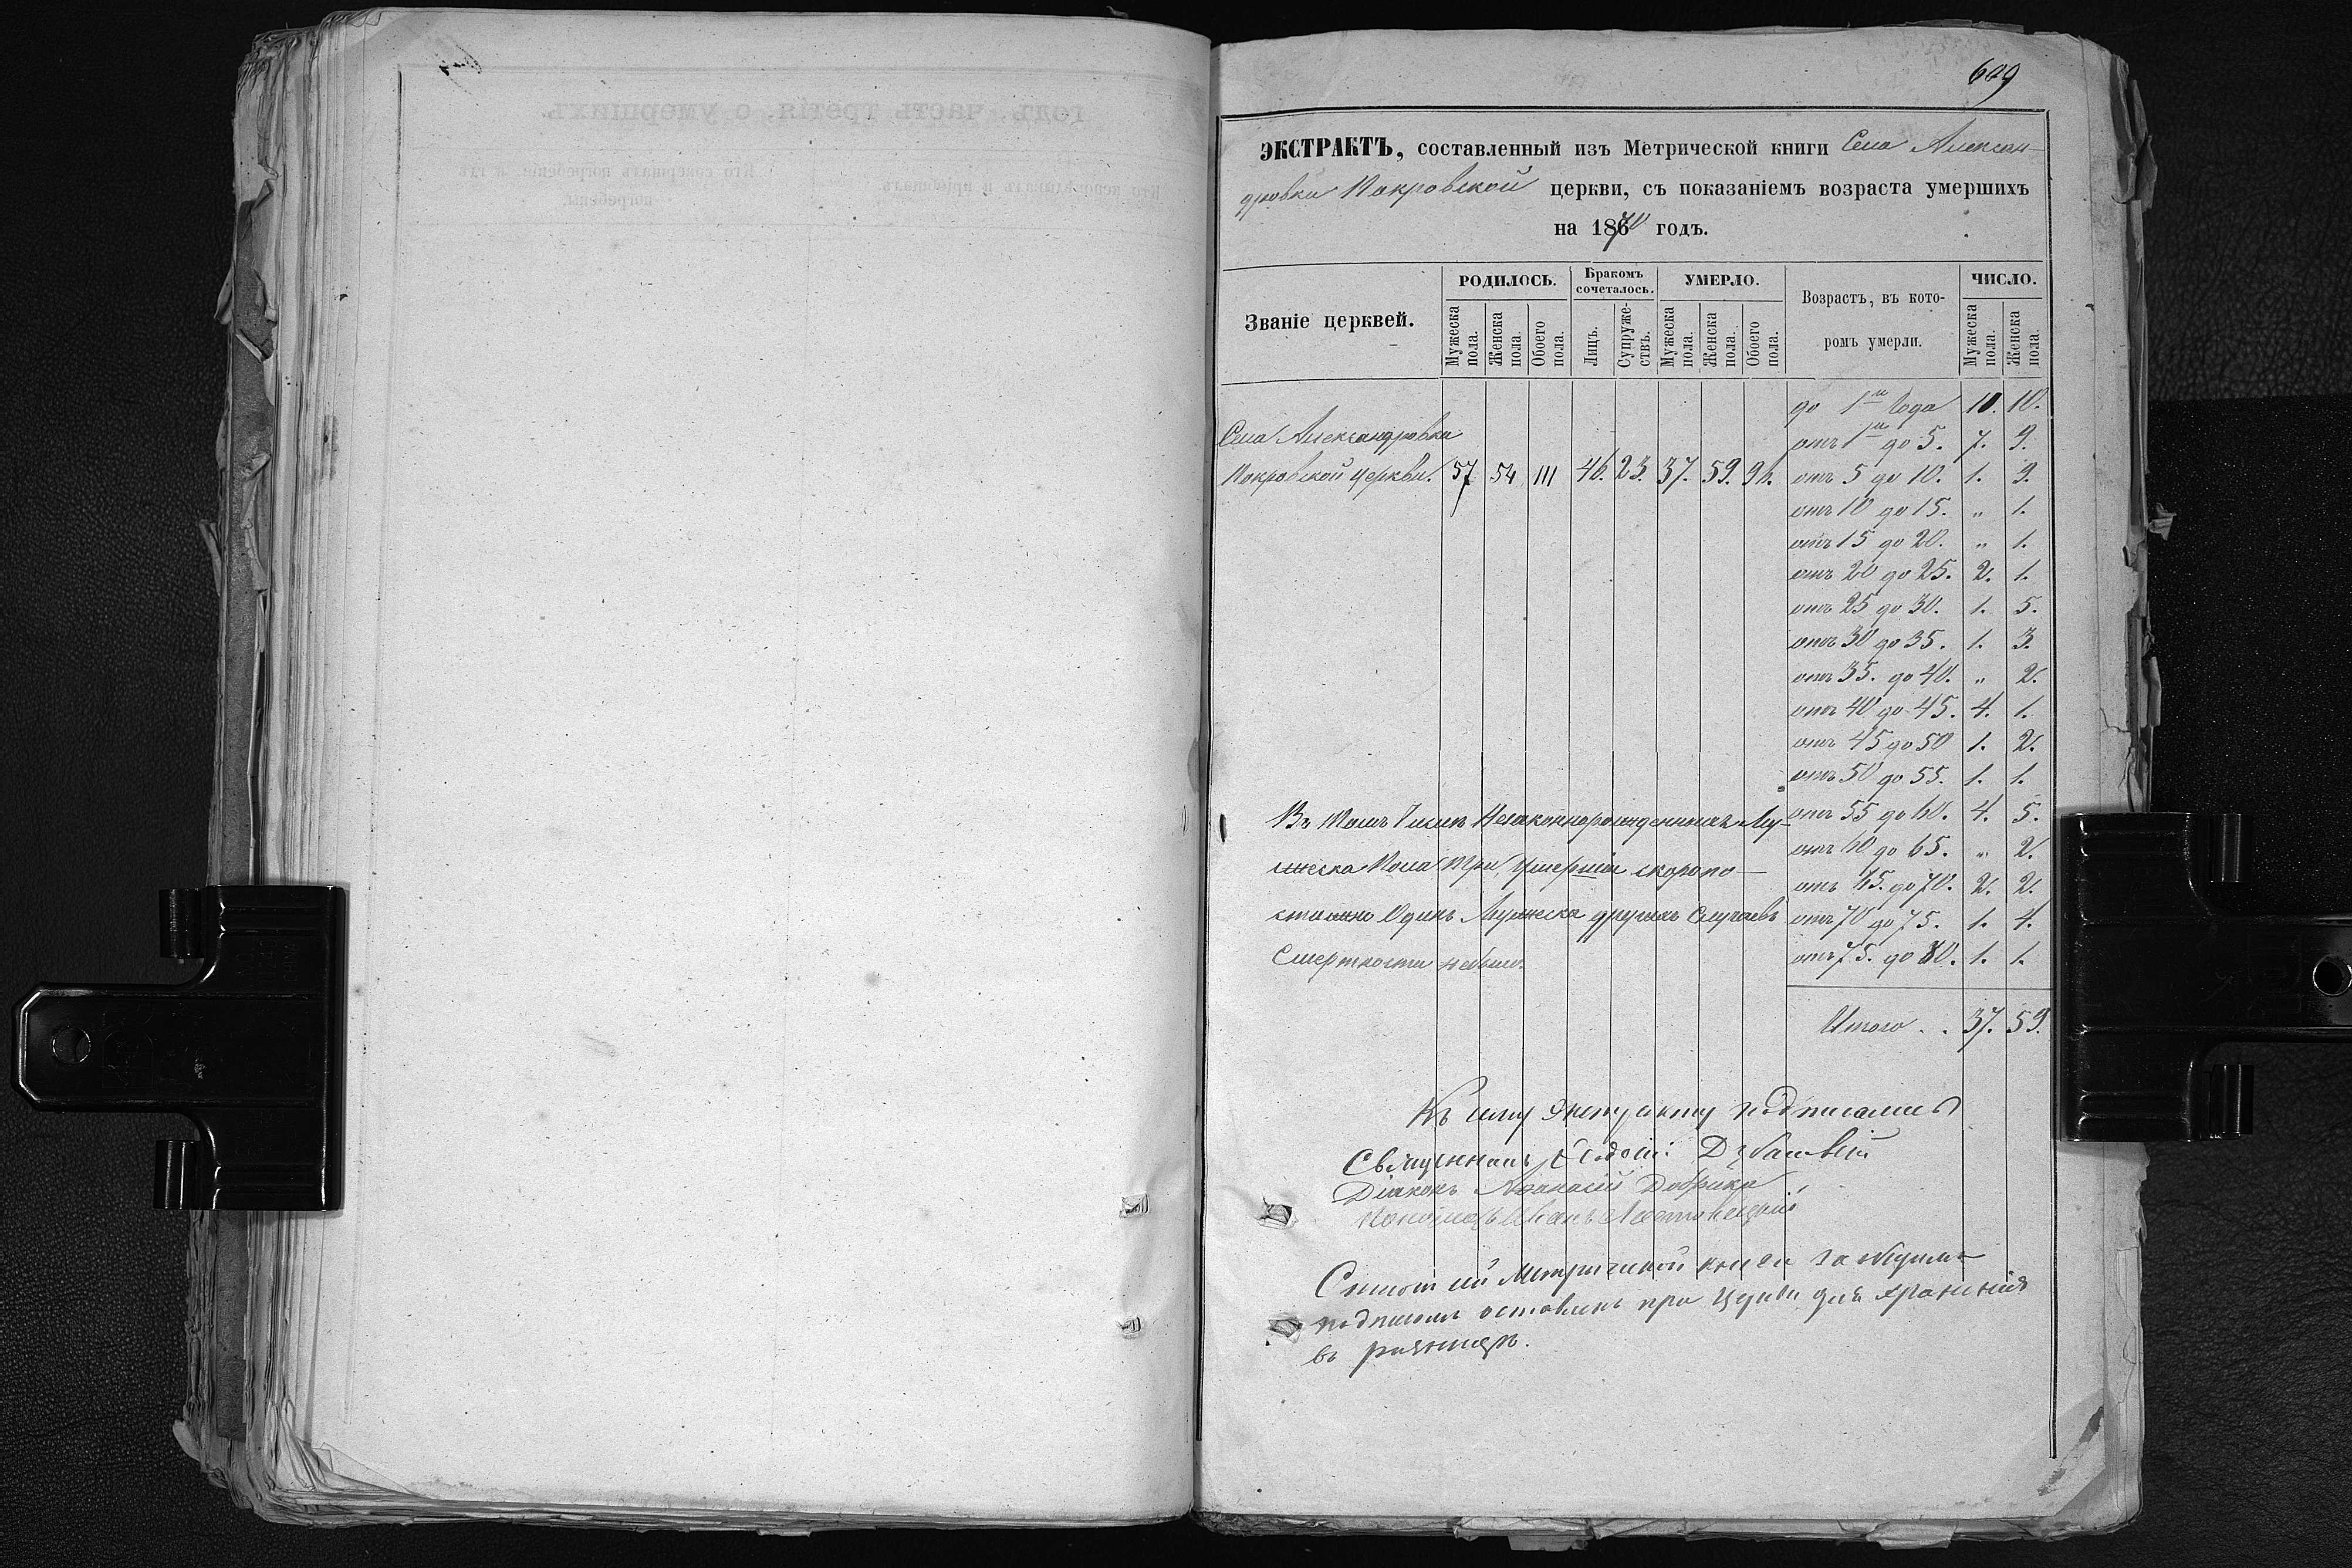 609
ЭКСТРАКТЪ, составленный изъ Метрической книги Села Алексан-
дровки Покровской церкви, съ показаніемъ возраста умершихъ
на 1870 годъ.
Званіе церквей.
РОДИЛОСЬ.
Бракомъ сочеталось.
УМЕРЛО.
Возрастъ, въ кото-
ромъ умерли.
ЧИСЛО.
Мужеска пола. Женска пола. Обоего пола. Лицъ. Супруже-ствъ. Мужеска пола. Женска пола. Обоего пола. Мужеска пола. Женска пола.
до 1го Года 10. 10.
Села Александровки
отъ 1го до 5. 7. 9.
Покровской церкви. 57 54 111 46. 23. 37. 59. 96. отъ 5 до 10. 1. 9.
отъ 10 до 15. „ 1.
отъ 15 до 20. „ 1.
отъ 20 до 25. 2. 1.
отъ 25 до 30. 1. 5.
отъ 30 до 35. 1. 3.
отъ 35. до 40. „ 2.
отъ 40 до 45. 4. 1.
отъ 45 до 50 1. 2.
отъ 50 до 55. 1. 1.
отъ 55 до 60. 4. 5.
отъ 60 до 65. „ 2.
отъ 65. до 70. 2. 2.
отъ 70 до 75. 1. 4.
отъ 75. до 80. 1. 1.
Итого . . 37. 59.
Въ томъ Числѣ Незаконнорожденныхъ Му-
жеска Пола три, Умершія скоропо-
стижно Одинъ Мужеска другихъ Случаевъ
Смертности небыло.
Къ сему Экстракту подписались
Священникъ
Діаконъ Афанасій
Иванъ
Списокъ сей Метрической книги за общимъ
подписомъ оставленъ при Церкви для храненія
въ ризницѣ.
годъ, часть третія, о умершихъ.
Кто исповѣдывалъ и пріобщалъ.
Кто совершалъ погребеніе, и гдѣ
погребены.